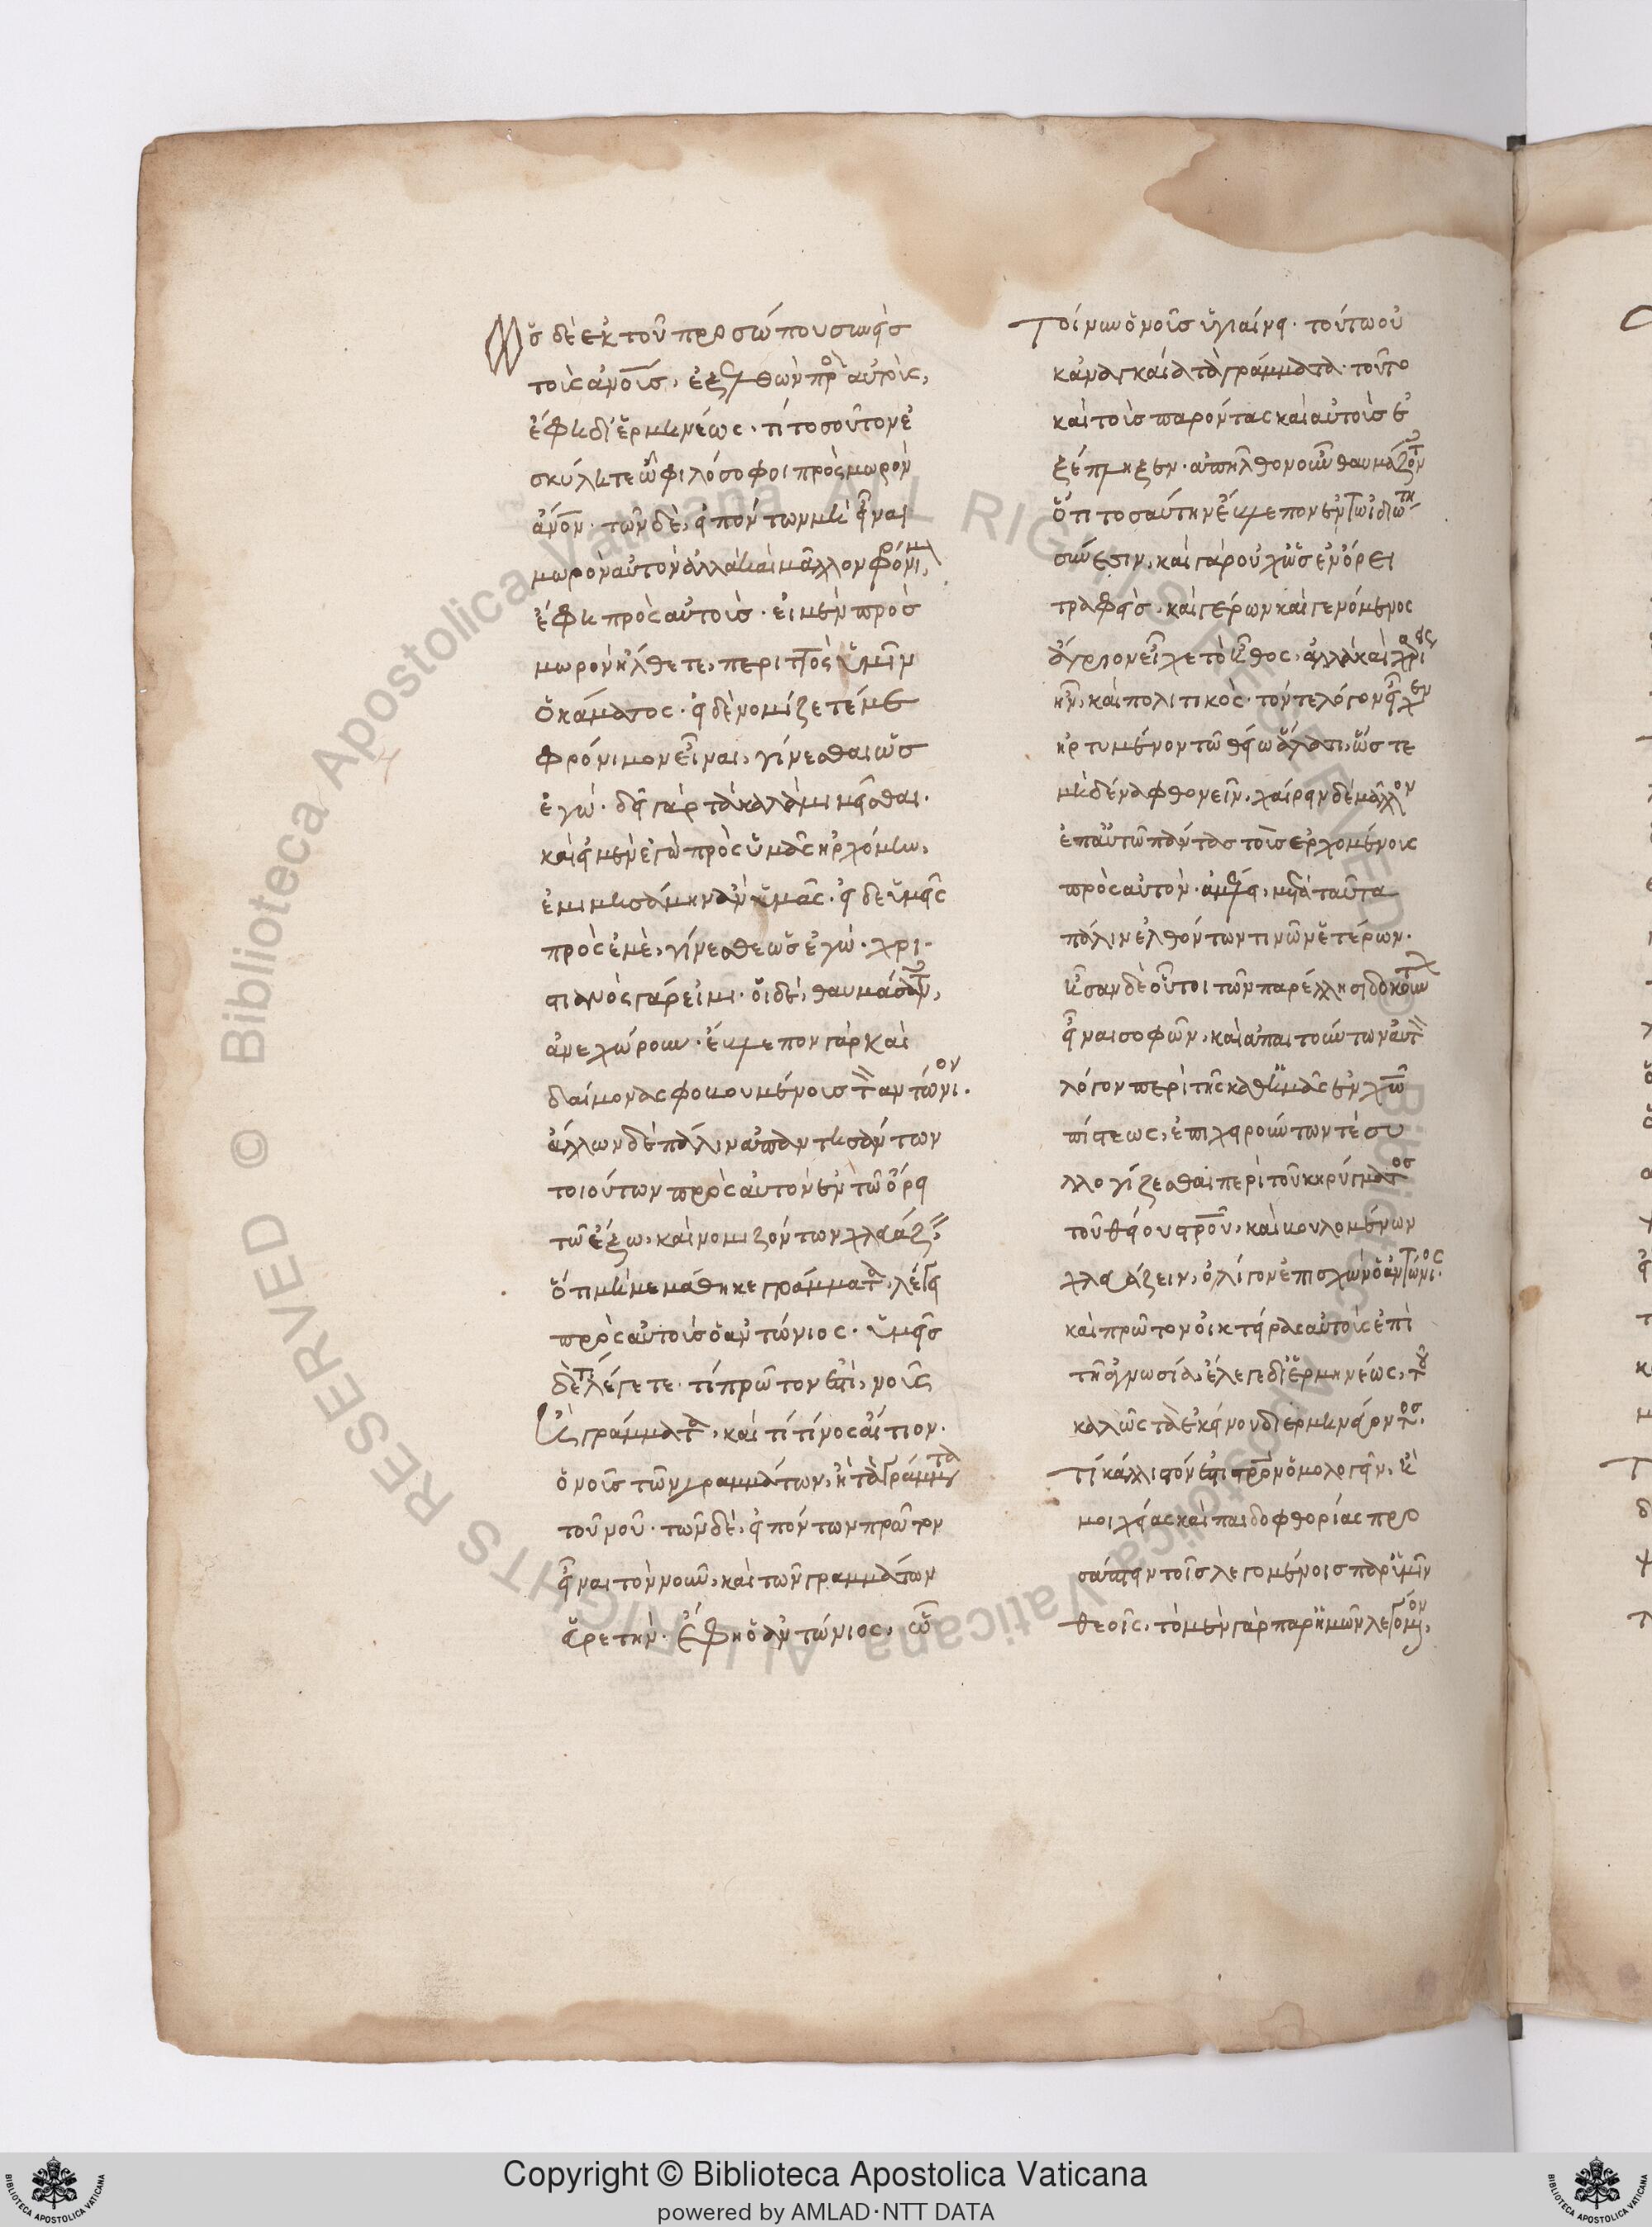 ὃς δὲ ἐκ τοῦ προσώπου συνεὶς
τοὺς ἀνουσ, ἐξελθὼν πρὸ αὐτοὺς,
ἔφη δι' ἑρμηνέως· τί τοσοῦτον ἐ
σκύλητε ὦ φιλόσοφοι πρὸς μωρὸν
ἀνον· τῶν δὲ, εἰπόντων μὴ εἶναι
μωρὸν αὐτὸν ἀλλὰ καὶ μᾶλλον φρόνιμ,
ἔφη πρὸς αὐτούς· εἰ μὲν πρὸς
μωρὸν ἤλθετε, περιττὸς ὑμῖν
ὁ κάματος· εἰ δὲ νομίζετέ με
φρόνιμον εἶναι, γίνεσθαι ὡς
ἐγώ· δεῖ γὰρ τὰ καλὰ μιμεῖσθαι·
καὶ εἰ μὲν ἐγὼ πρὸς ὑμᾶς ἠρχόμην,
ἐμιμησάμην ἂν ὑμᾶς· εἰ δὲ ὑμεῖς
πρὸς ἐμὲ, γίνεσθε ὡς ἐγώ· χρι
στιανὸς γάρ εἰμι· οἱ δὲ, θαυμάσαντ,
ἀνεχώρουν· ἔβλεπον γὰρ καὶ
δαίμονας φοβουμένους τ ἀντώνιον·
ἄλλων δὲ πάλιν ἀπαντησάντων
τοιούτων πρὸς αὐτὸν ἐν τῷ ὄρει
τῷ ἔξω, καὶ νομιζόντων χλευάζ
ὅτι μὴ μεμάθηκε γράμματ, λέγει
πρὸς αὐτοὺς ὁ ἀντώνιος· ὑμεῖς
δὲ τί λέγετε· τί πρῶτον ἐστὶ, νοῦς
ἢ γράμματ, καὶ τί τίνος αἴτιον·
ὁ νοῦς τῶν γραμμάτων, ἢ τὰ γράμματα
τοῦ νοῦ· τῶν δὲ, εἰπόντων πρῶτον
εἶναι τὸν νοῦν, καὶ τῶν γραμμάτων
εὑρετὴν· ἔφη ὁ ἀντώνιος, ὧ
τοίνυν ὁ νοῦς ὑγιαίνει· τούτω οὐ
κ ἀναγκαία τὰ γράμματα· τοῦτο
καὶ τοὺς παρόντας καὶ αὐτοὺς ἐ
ξέπληξεν· ἀπῆλθον οὖν θαυμάζοντ
ὅτι τοσαύτην ἔβλεπον ἐν ἰδιώτη
σύνεσιν, καὶ γὰρ οὐχ ὡς ἐν ὄρει
τραφεὶς, καὶ γέρων καὶ γενόμενος
ἄγριον εἶχε τὸ ἦθος, ἀλλὰ καὶ χαρίεις
ἦν, καὶ πολιτικός· τόν τε λόγον εἶχεν
ἠρτυμένον τῷ θείω ἅλατι, ὥστε
μηδένα φθονεῖν, χαίρειν δὲ μᾶλλον
ἐπ' αὐτῶ πάντας τοὺς ἐρχομένους
πρὸς αὐτόν· ἀμέλει, μετὰ ταῦτα
πάλιν ἐλθόντων τινῶν ἑτέρων·
ἦσαν δὲ οὗτοι τῶν παρ' ἕλλησι δοκούντ
εἶναι σοφῶν, καὶ ἀπαιτούντων αὐτ
λόγον περὶ τῆς καθ' ἡμᾶς ἐν χω
πίστεως, ἐπιχειρούντων τὲ συ
λλογίζεσθαι περὶ τοῦ κηρύγματος
τοῦ θείου στρου, καὶ βουλομένων
χλευάζειν, ὀλίγον ἐπισχὼν ὁ ἀντώνιος·
καὶ πρῶτον οἰκτείρας αὐτοὺς ἐπὶ
τῇ ἀγνωσία, ἔλεγε δι' ἑρμηνέως, τ
καλῶς τὰ ἐκείνου διερμηνεύοντος·
τί κάλλιστόν ἐστι στρον ὁμολογεῖν, ἢ
μοιχείας καὶ παιδοφθορίας προ
σάπτειν τοῖς λεγομένοις παρ' ὑμῖν
θεοῖς, τὸ μὲν γὰρ παρ' ἡμῶν λεγόμενον,
Copyright © Biblioteca Apostolica Vaticana
powered by AMLAD·NTT DATA